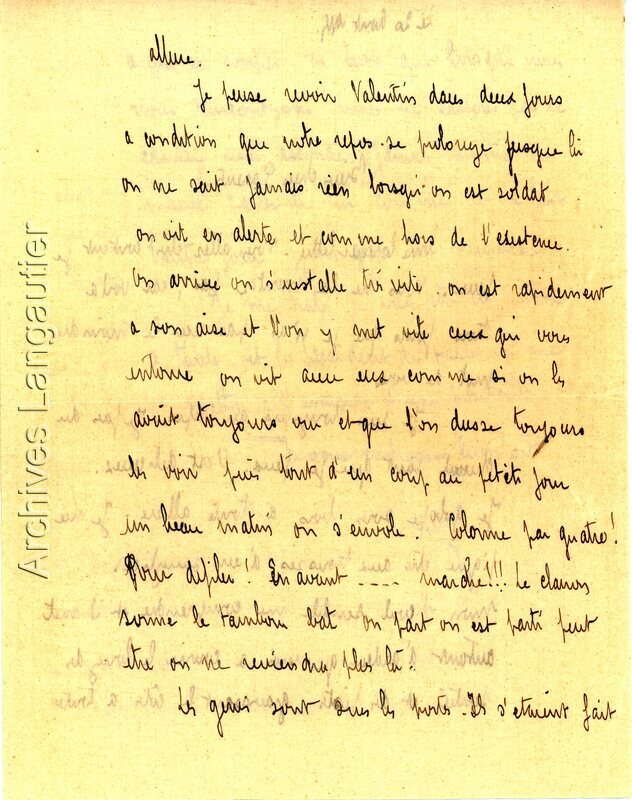 allure.
Je pense revoir Valentin dans deux jours
a condition que notre repos se prolonge jusque là
on ne sait jamais rien lorsqu'on est soldat
on vit en alerte et comme hors de l'existence.
On arrive on s'installe très vite on est rapidement
a son aise et l'on y met vite ceux qui vous
entoure on vit avec eux comme si on les
avait toujours vu et que l'on dusse toujours
les voir puis tout d'un coup au petit jour
un beau matin on s'envole. Colonne par quatre!
Pour défiler! En avant .... marche!!! Le clairon
sonne le tambour bat on part on est parti peut
etre on ne reviendra plus là.
Les gens sont sur les portes. Ils s'étaient fait
Archives Langautier